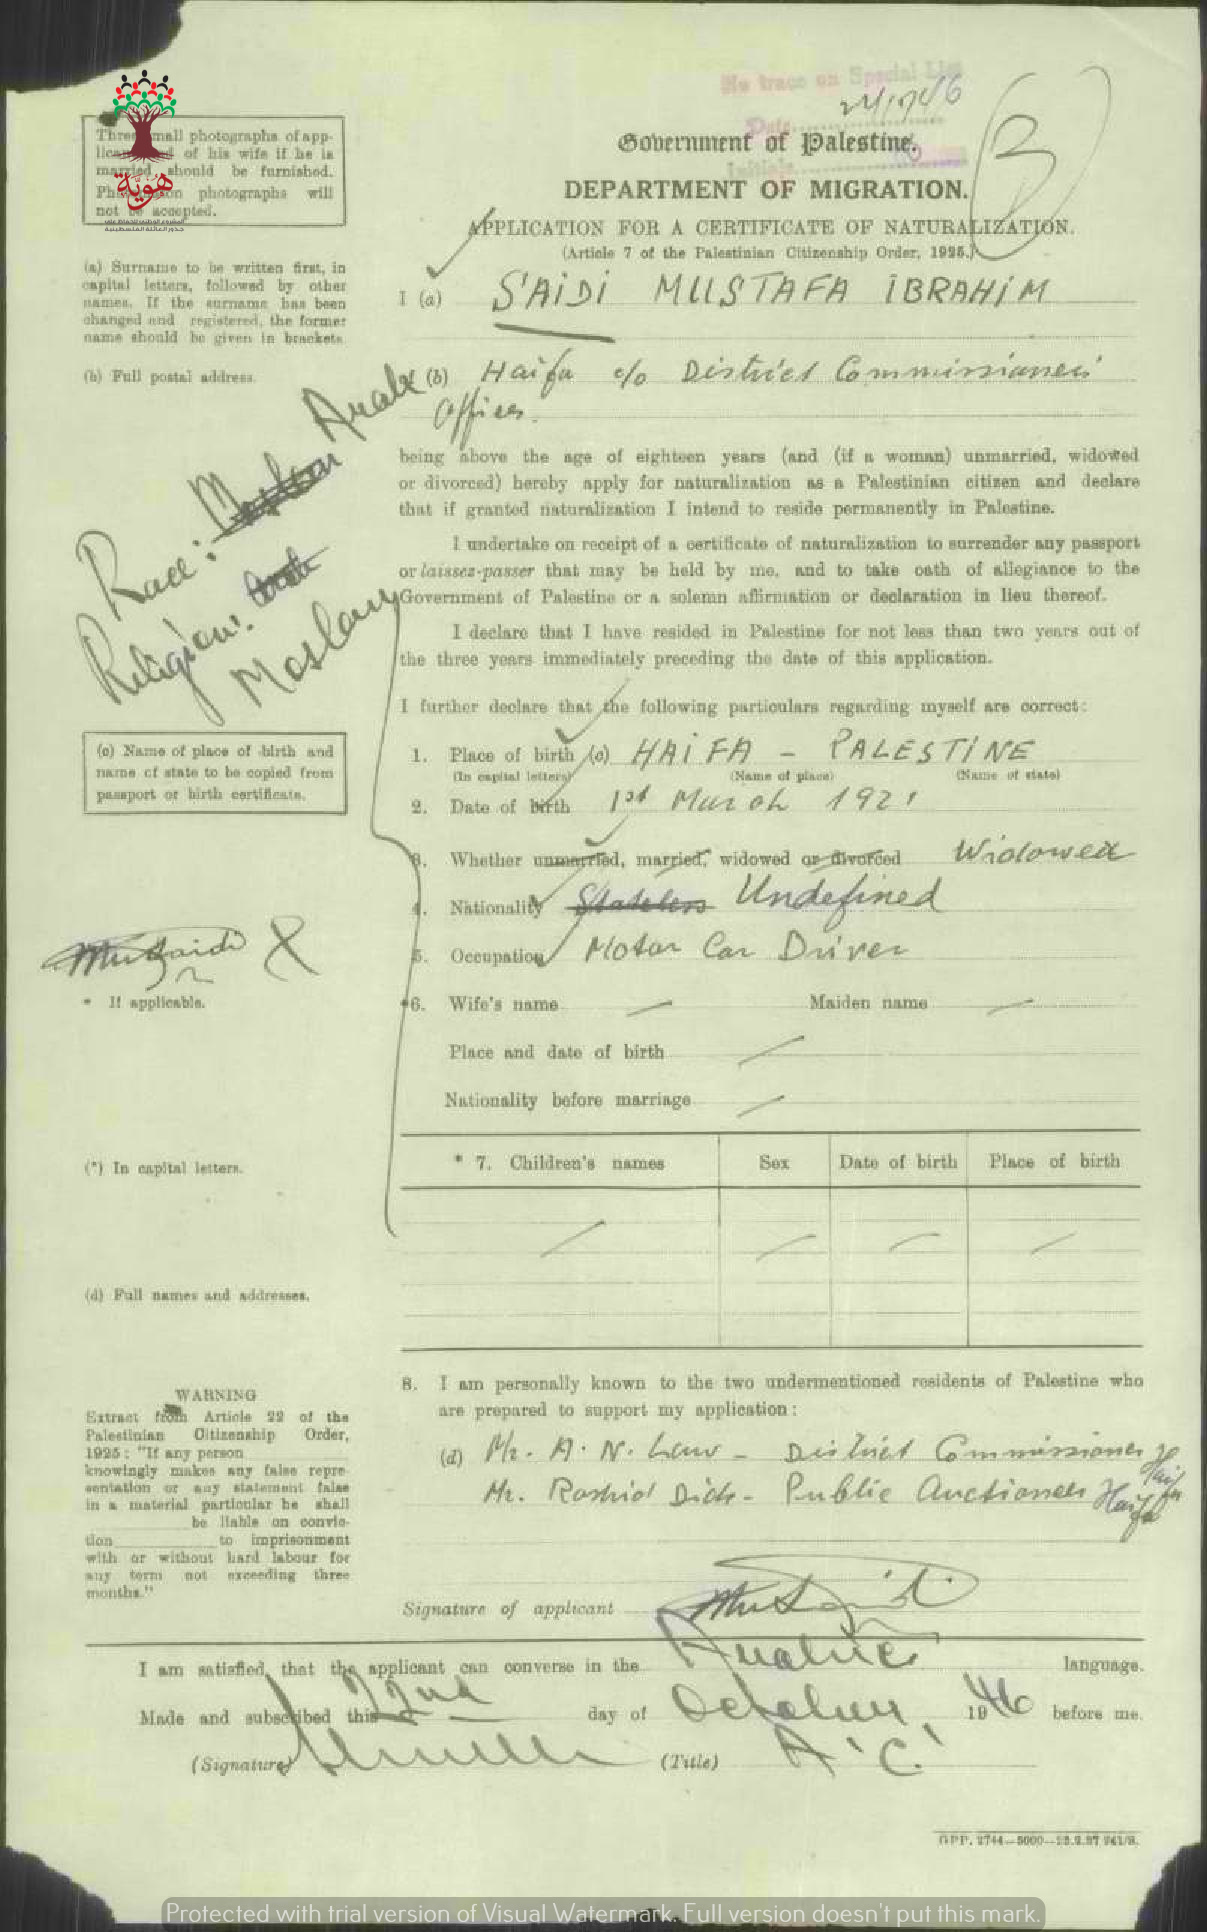 No trace on Special List
Date
Initials
3
Government of Palestine.
DEPARTMENT OF MIGRATION.
APPLICATION FOR A CERTIFICATE OF NATURALIZATION.
(Article 7 of the Palestinian Citizenship Order, 1925.)
Three small photographs of app-
of his wife if he is
married should be furnished.
photographs will
not be accepted.
هوية
(a) Surname to be written first, in
capital letters, followed by other
names. If the surname has been
changed and registered, the former
name should be given in brackets.
I (a) SAIDI MUSTAFA IBRAHIM
(b) Full postal address.
(b) Haifa c/o District Commissioner's
Offices.
Race: Moslem Arab
Religion: Arab
Moslem
being above the age of eighteen years (and (if a woman) unmarried, widowed
or divorced) hereby apply for naturalization as a Palestinian citizen and declare
that if granted naturalization I intend to reside permanently in Palestine.
I undertake on receipt of a certificate of naturalization to surrender any passport
or laissez-passer that may be held by me, and to take oath of allegiance to the
Government of Palestine or a solemn affirmation or declaration in lieu thereof.
I declare that I have resided in Palestine for not less than two years out of
the three years immediately preceding the date of this application.
I further declare that the following particulars regarding myself are correct:
(c) Name of place of birth and
name of state to be copied from
passport or birth certificate.
1. Place of birth (c) HAIFA - PALESTINE
(In capital letters) (Name of place) (Name of state)
2. Date of birth 1st March 1921
3. Whether unmarried, married, widowed or divorced Widowed
4. Nationality Stateless Undefined
5. Occupation Motor Car Driver
* If applicable.
*6. Wife's name Maiden name
Place and date of birth
Nationality before marriage
(*) In capital letters.
* 7. Children's names Sex Date of birth Place of birth
(d) Full names and addresses.
8. I am personally known to the two undermentioned residents of Palestine who
are prepared to support my application:
(d) Mr. A. N. Law - District Commissioner Haifa
Mr. Rashid Dick - Public Auctioneer Haifa
WARNING
Extract from Article 22 of the
Palestinian Citizenship Order,
1925: "If any person
knowingly makes any false repre-
sentation or any statement false
in a material particular he shall
be liable on convic-
tion to imprisonment
with or without hard labour for
any term not exceeding three
months."
Signature of applicant
I am satisfied that the applicant can converse in the Arabic language.
Made and subscribed this 22nd day of October 1946 before me.
(Signature) (Title) A.C.
GPP. 2744—5000—23.2.37 241/S.
Protected with trial version of Visual Watermark. Full version doesn't put this mark.